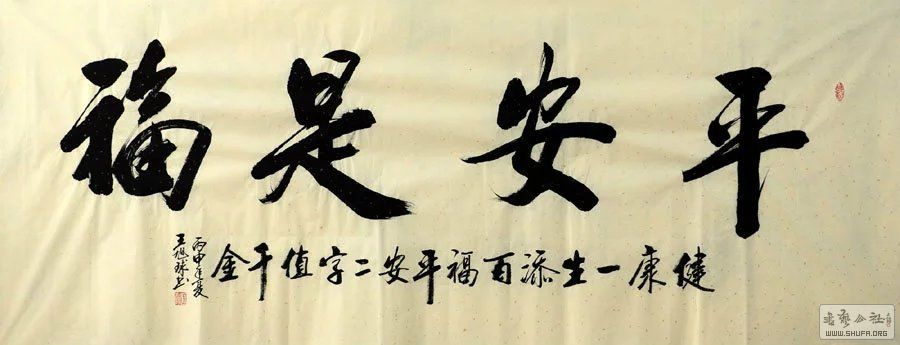 平安是福
健康一生添百福平安二字值千金
丙申年夏
王旭球书
书艺公社
WWW.SHUFA.ORG